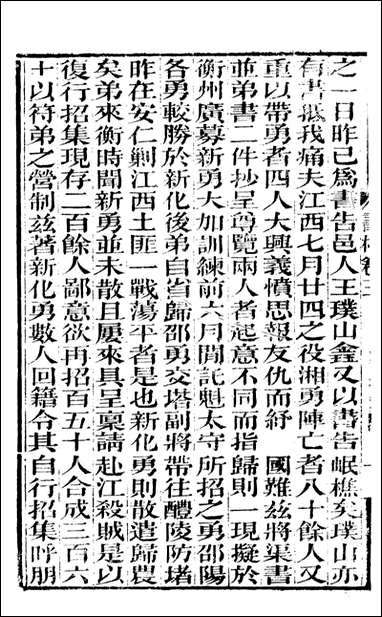 之一日昨已爲書告邑人王璞山鑫又以書告岷樵矣璞山亦
有書抵我痛夫江西七月廿四之役湘勇陣亡者八十餘人又
重以帶勇者四人大興義憤思報友仇而紓　國難茲將渠書
並弟書二件抄呈尊覽兩人者起意不同而指歸則一現擬於
衡州廣募新勇大加訓練前六月間託魁太守所招之勇邵陽
各勇較勝於新化後弟自省歸邵勇交塔副將帶往醴陵防堵
昨在安仁剿江西土匪一戰蕩平者是也新化勇則散遣歸農
矣弟來衡時聞新勇並未散且屢來具呈稟請赴江殺賊是以
復行招集現存二百餘人鄙意欲再招百五十人合成三百六
十以符弟之營制茲著新化勇數人回籍令其自行招集呼朋